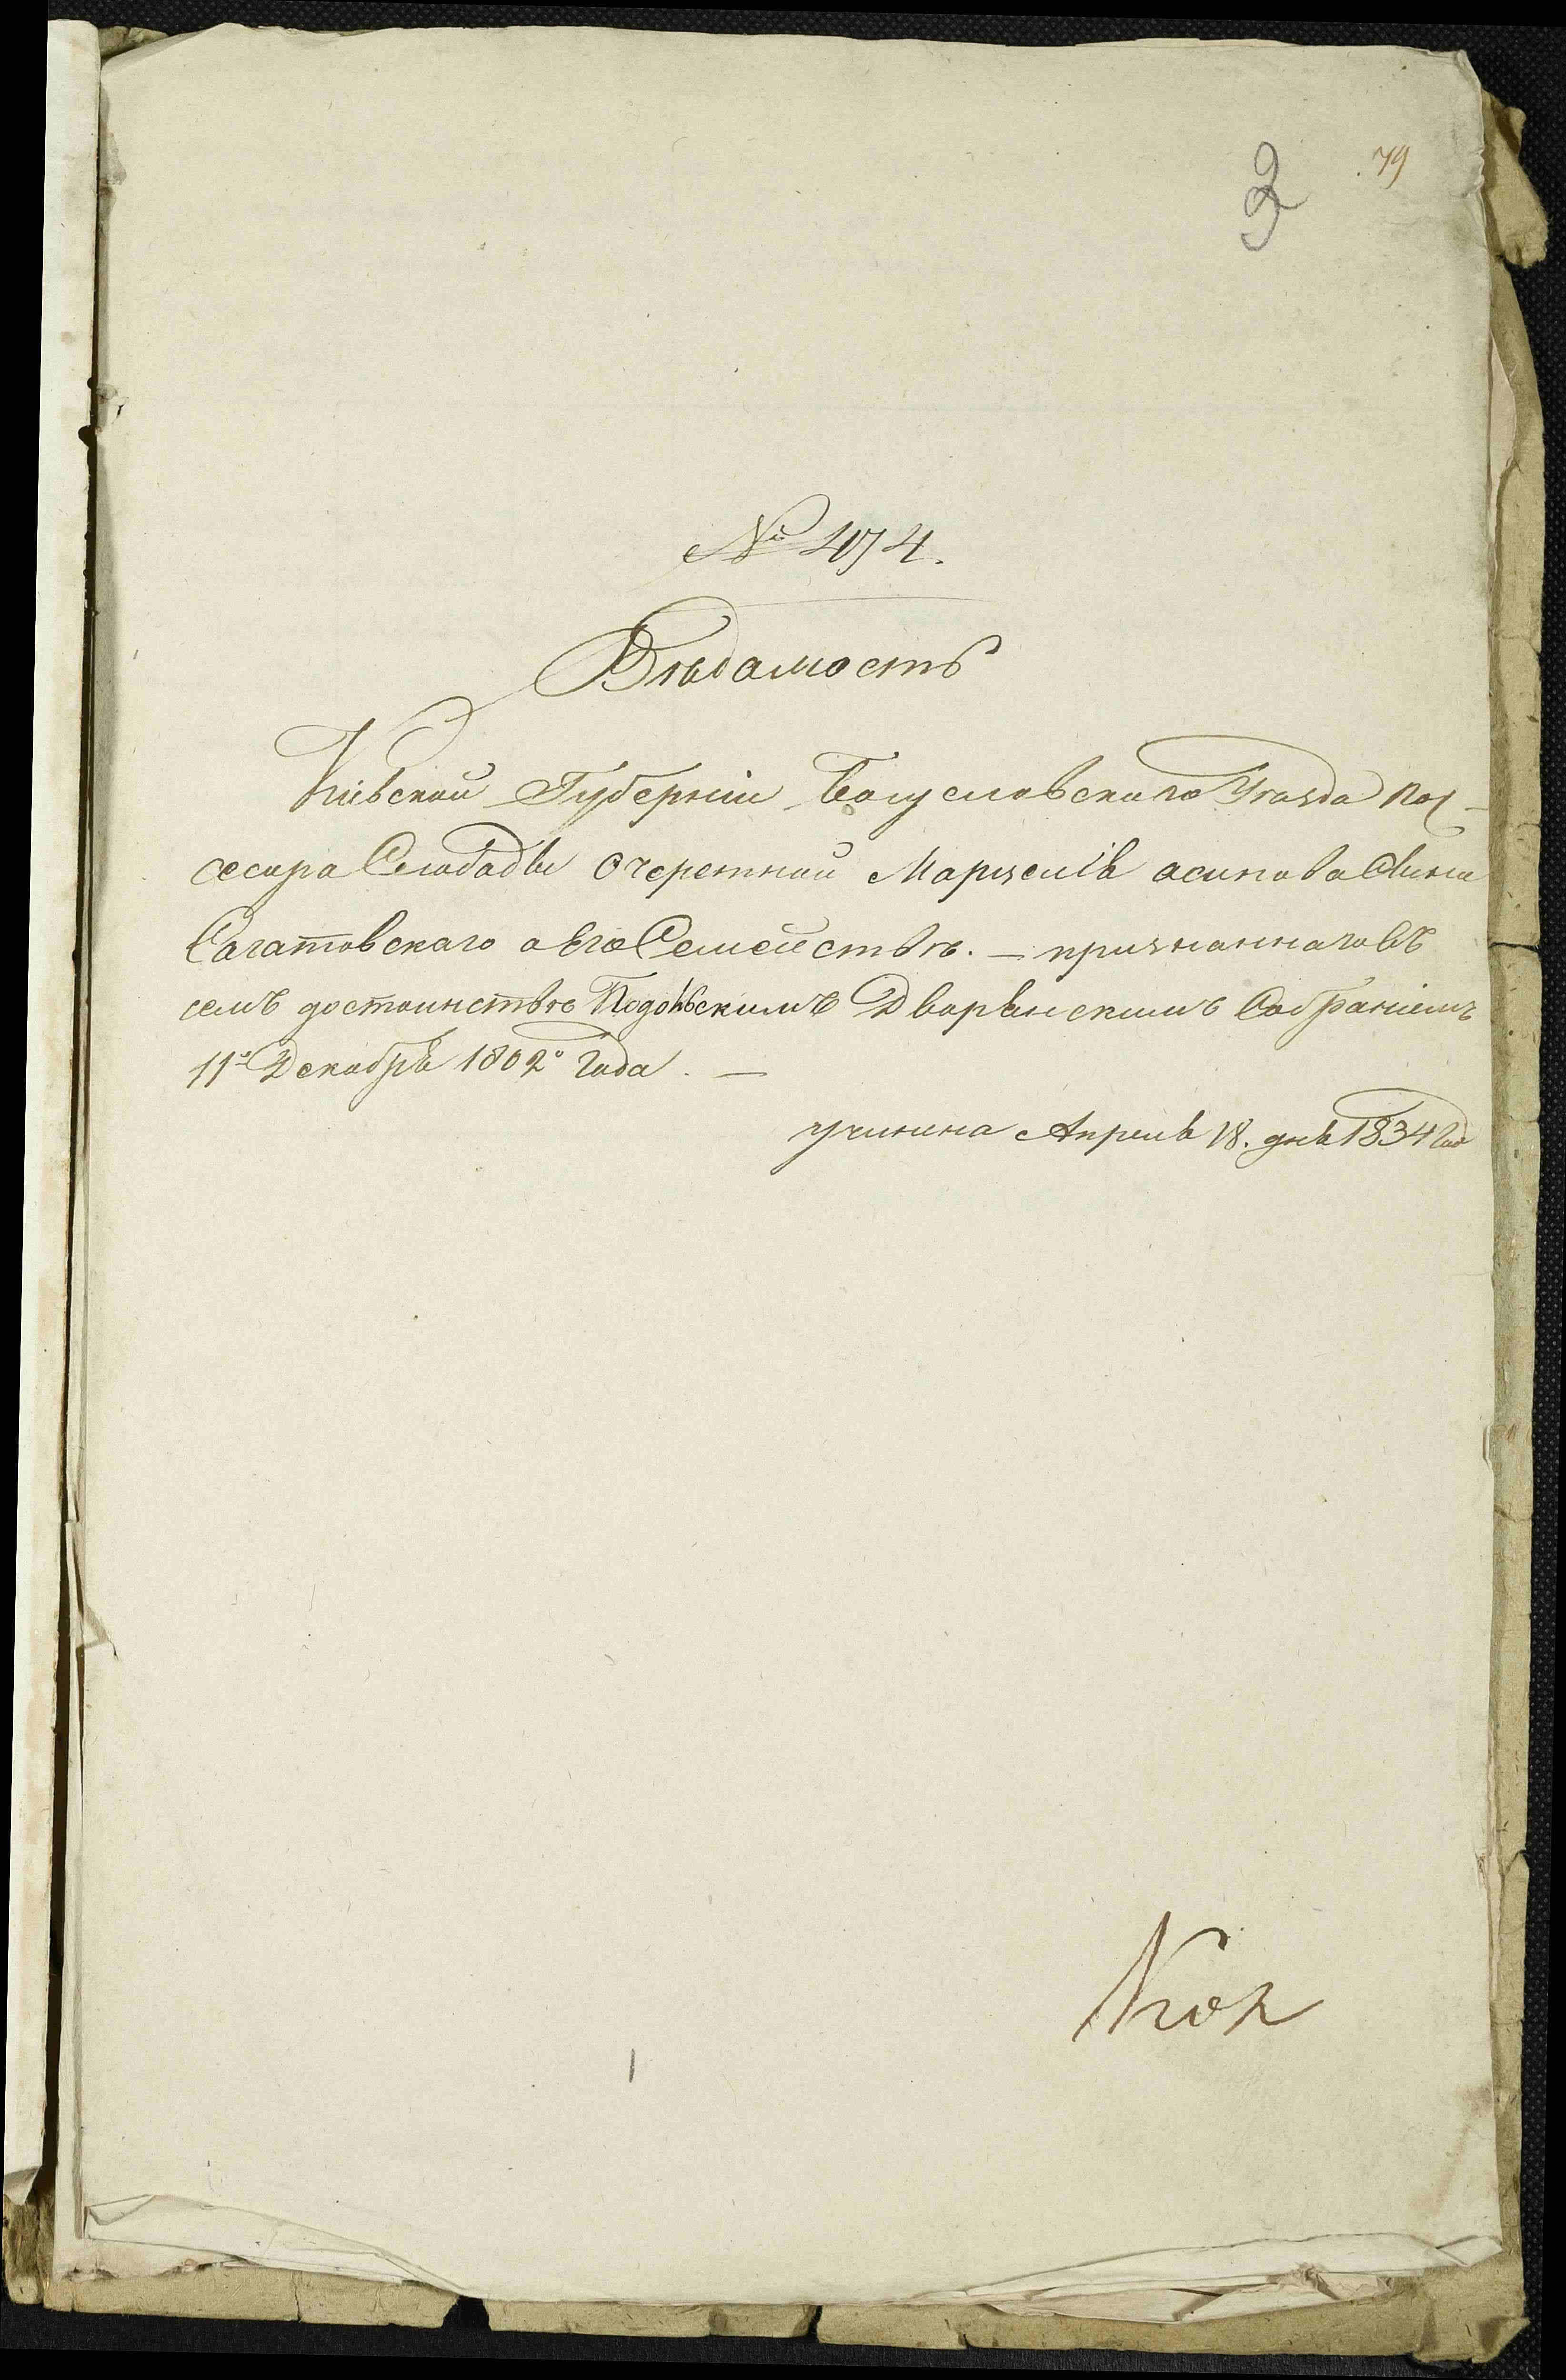 3 79
№ 474.
Вѣдомость
Кіевской Губерніи Богуславскаго Уѣзда Пос-
сесора Слободы Очеретной Марцелія Осипова Сына
Сагатовскаго о Его Семействѣ. — признаннаго въ
семъ достоинствѣ Подольскимъ Дворянскимъ Собраніемъ
11º Декабря 1802º Года. —
учинена Апреля 18. дня 1834 Год